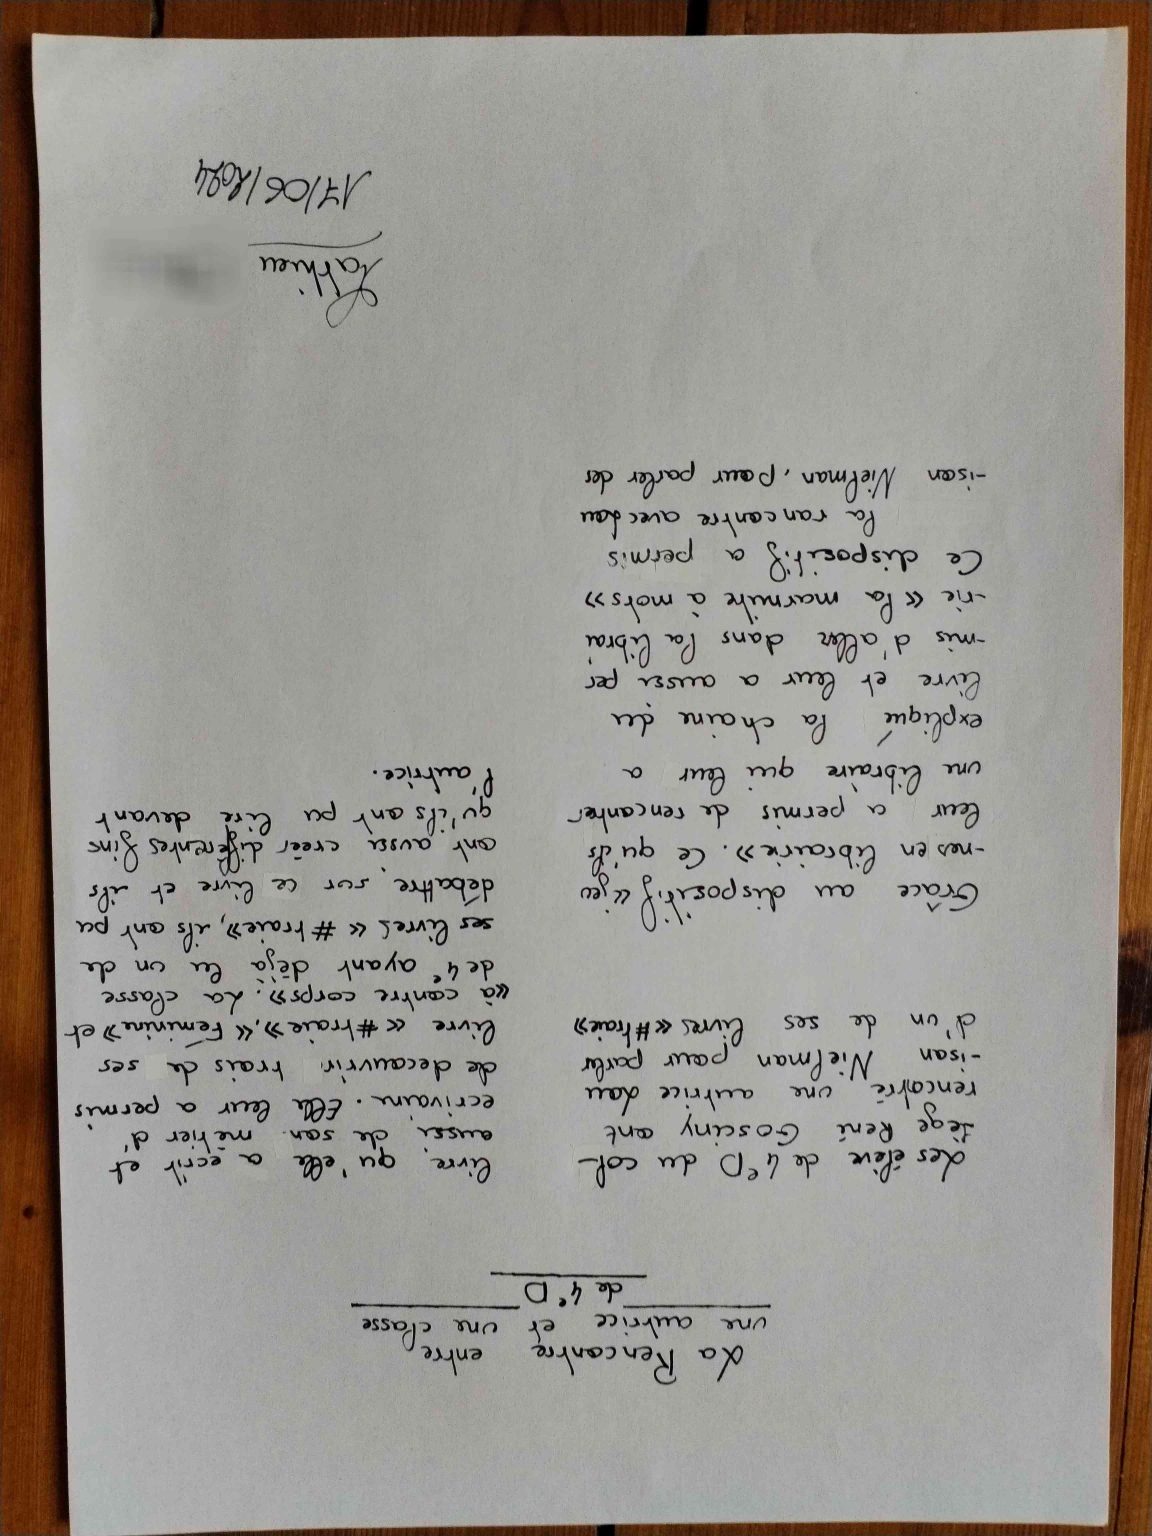 La Rencontre entre
une autrice et une classe
de 4e D
Les élève de 4eD du col-
lège René Gosciny ont
rencontré une autrice Lou
-isan Nielman pour parler
d'un de ses livres «#traie»
Grâce au dispositif «jeu
-nes en librairie». Ce qu'ils
leur a permis de rencontrer
une libraire qui leur a
expliqué la chaine du
livre et leur a aussi per
-mis d'aller dans la librai
-rie «la marmite à mots»
Ce dispositif a permis
la rancontre avec Lou
-isan Nielman, pour parler des
livre, qu'elle a écrit et
aussi de son métier d'
ecrivain. Elle leur a permis
de decouvrir trois de ses
livre «#traie», «Féminine» et
«à contre corps». La classe
de 4e ayant déjà lu un de
ses livres «#traie», ils ont pu
débattre sur ce livre et ils
ont aussi créer différentes fins
qu'ils ont pu lire devant
l'autrice.
Mathieu
17/06/2024